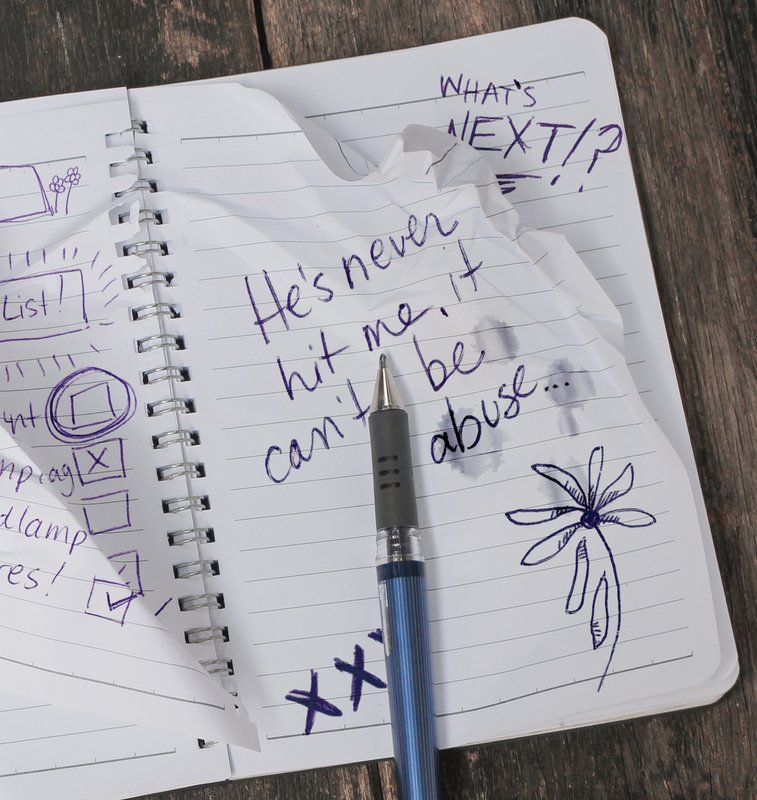 List!
res!
WHAT'S
NEXT!?
He's never
hit me, it
can't be
abuse...
xx